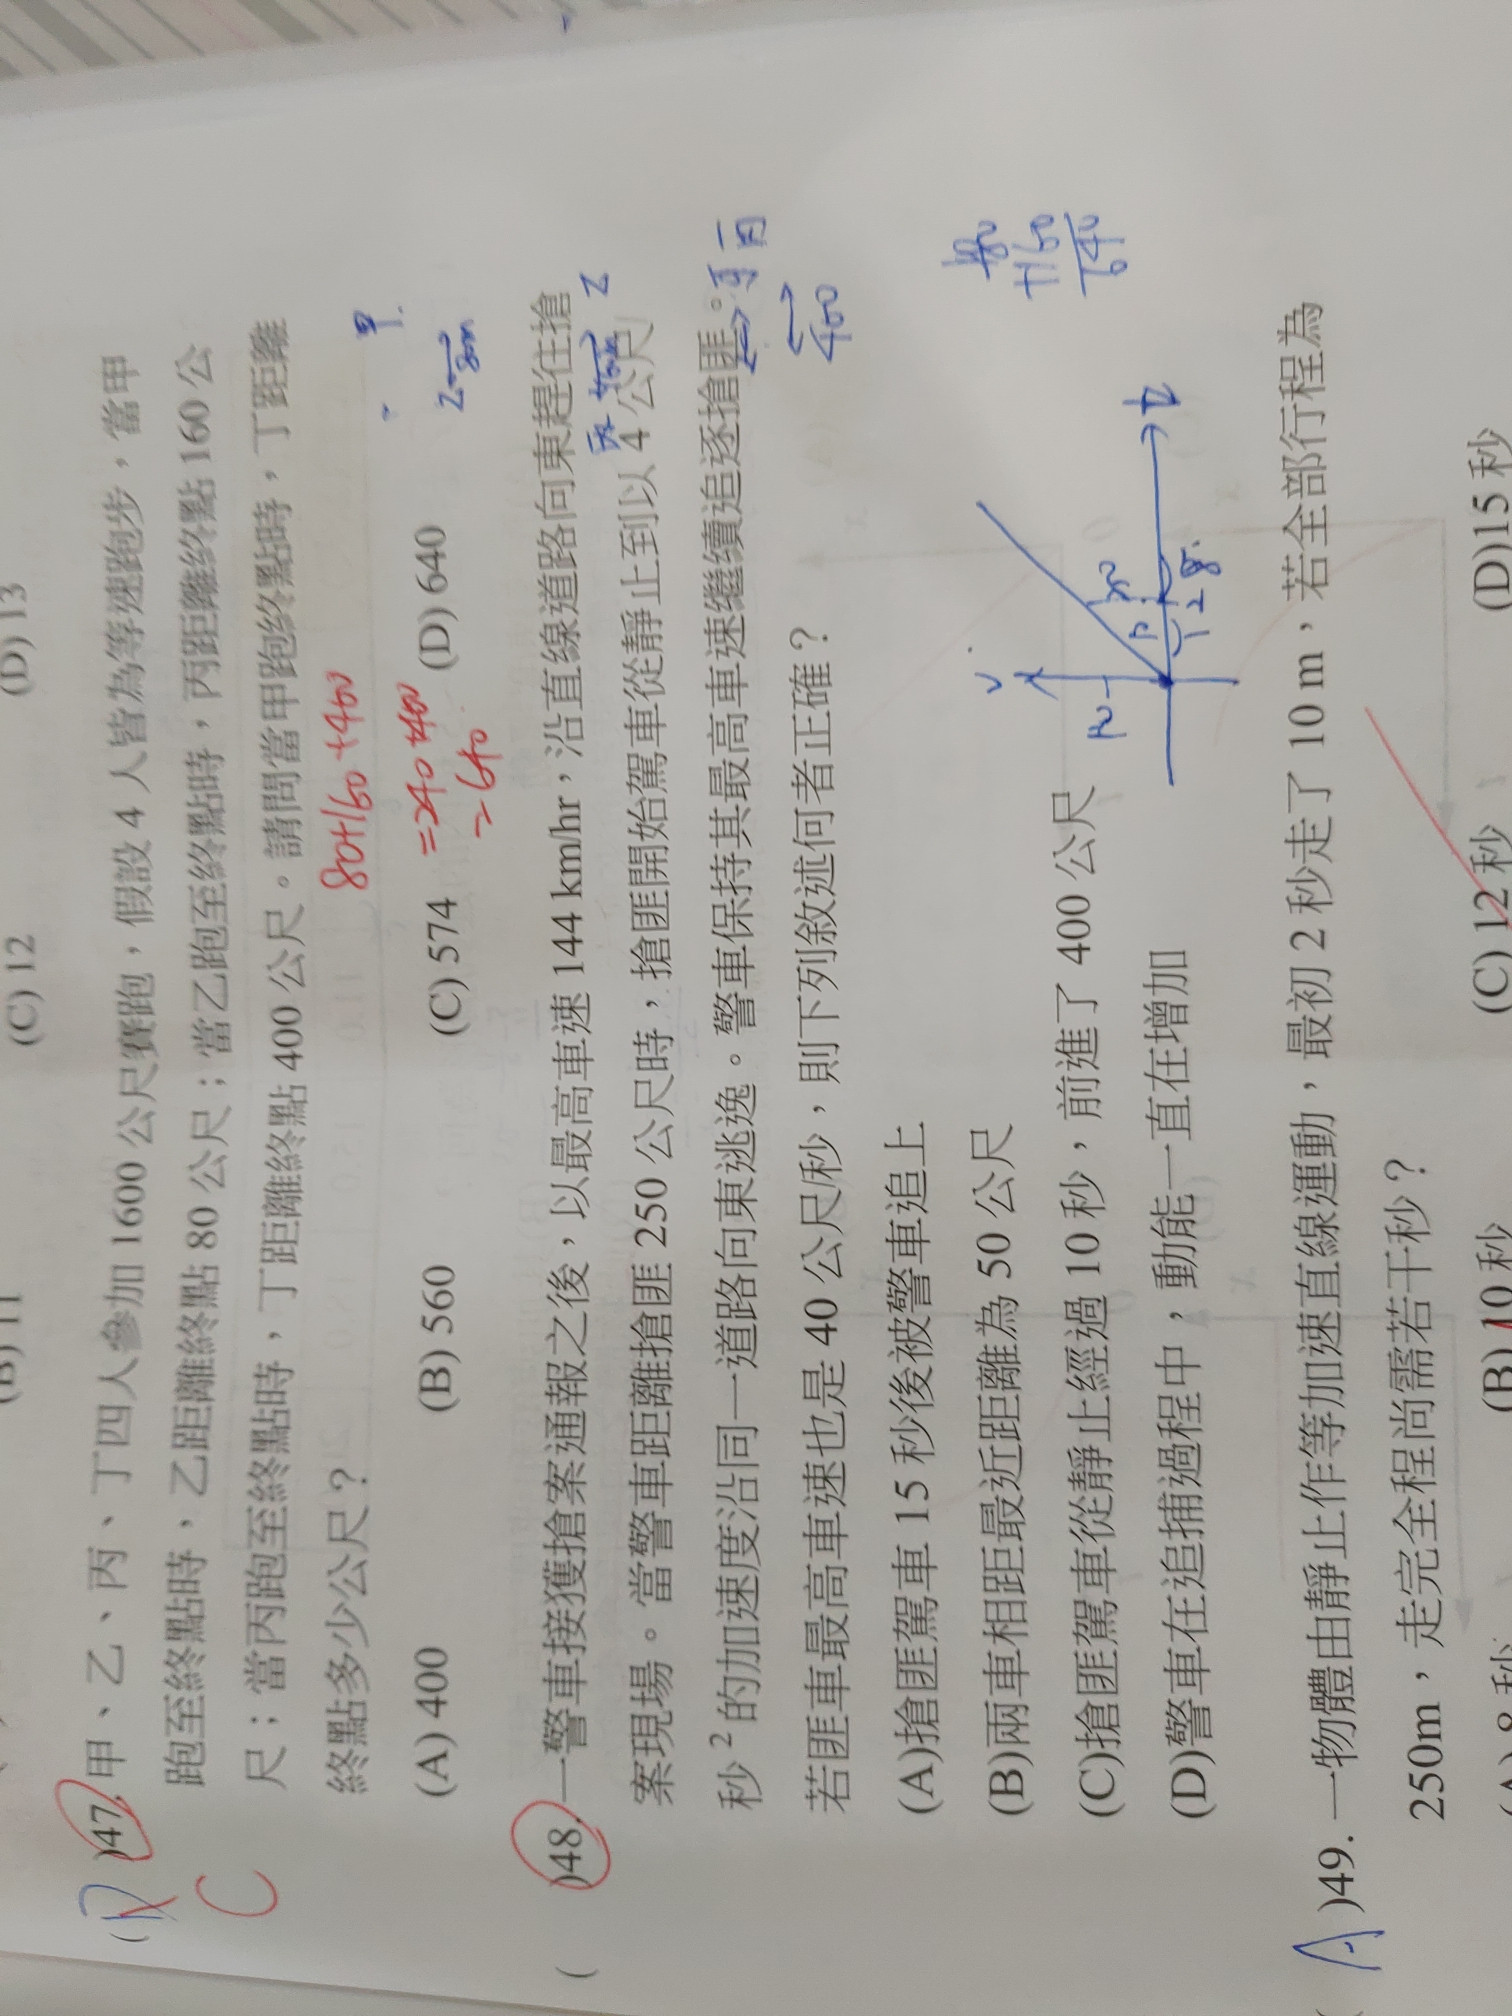 (C) 12
(D) 13
)47. 甲、乙、丙、丁四人參加 1600 公尺賽跑，假設 4 人皆為等速跑步，當甲
跑至終點時，乙距離終點 80 公尺；當乙跑至終點時，丙距離終點 160 公
尺；當丙跑至終點時，丁距離終點 400 公尺。請問當甲跑終點時，丁距離
終點多少公尺？
80+160+400
=240+400
=640
甲
乙
80m
C
(A) 400
(B) 560
(C) 574
(D) 640
( )48. 一警車接獲搶案通報之後，以最高車速 144 km/hr，沿直線道路向東趕往搶
案現場。當警車距離搶匪 250 公尺時，搶匪開始駕車從靜止到以 4 公尺/
秒2 的加速度沿同一道路向東逃逸。警車保持其最高車速繼續追逐搶匪。
若匪車最高車速也是 40 公尺/秒，則下列敘述何者正確？
400
(A)搶匪駕車 15 秒後被警車追上
(B)兩車相距最近距離為 50 公尺
(C)搶匪駕車從靜止經過 10 秒，前進了 400 公尺
(D)警車在追捕過程中，動能一直在增加
+160
640
v
t
10
1 2
A )49. 一物體由靜止作等加速直線運動，最初 2 秒走了 10 m，若全部行程為
250m，走完全程尚需若干秒？
(B) 10 秒
(C) 12 秒
(D)15 秒